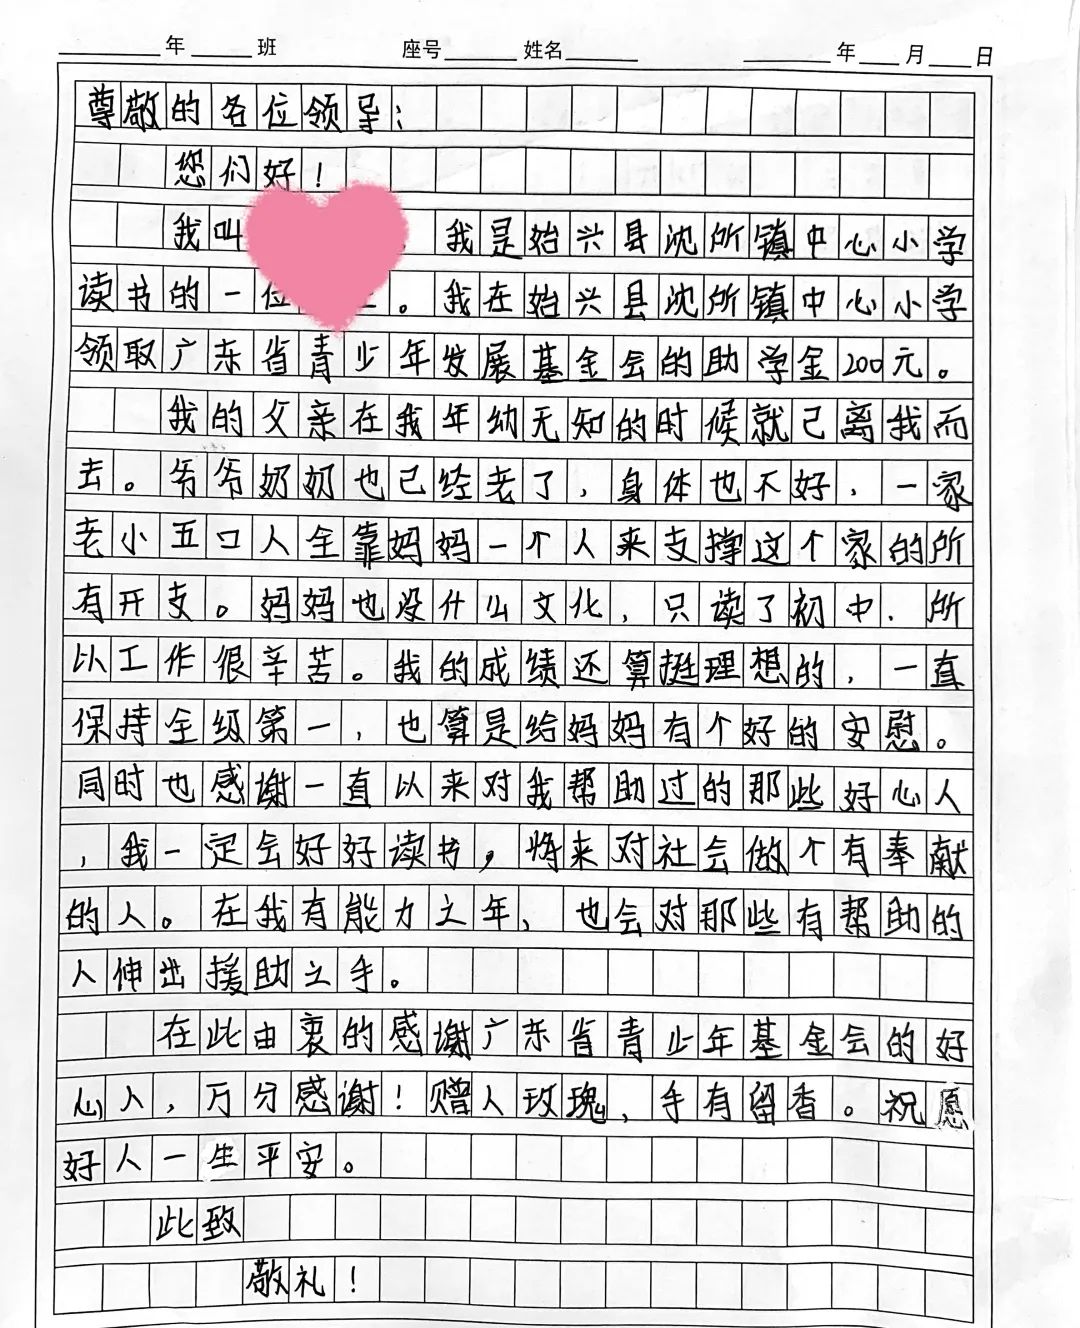 年 班 座号 姓名 年 月 日
尊敬的各位领导：
您们好！
我叫 我是始兴县沈所镇中心小学
读书的一位 。我在始兴县沈所镇中心小学
领取广东省青少年发展基金会的助学金200元。
我的父亲在我年幼无知的时候就已离我而
去。爷爷奶奶也已经老了，身体也不好，一家
老小五口人全靠妈妈一个人来支撑这个家的所
有开支。妈妈也没什么文化，只读了初中，所
以工作很辛苦。我的成绩还算挺理想的，一直
保持全级第一，也算是给妈妈有个好的安慰。
同时也感谢一直以来对我帮助过的那些好心人
，我一定会好好读书，将来对社会做个有奉献
的人。在我有能力之年，也会对那些有帮助的
人伸出援助之手。
在此由衷的感谢广东省青少年基金会的好
心人，万分感谢！赠人玫瑰，手有留香。祝愿
好人一生平安。
此致
敬礼！